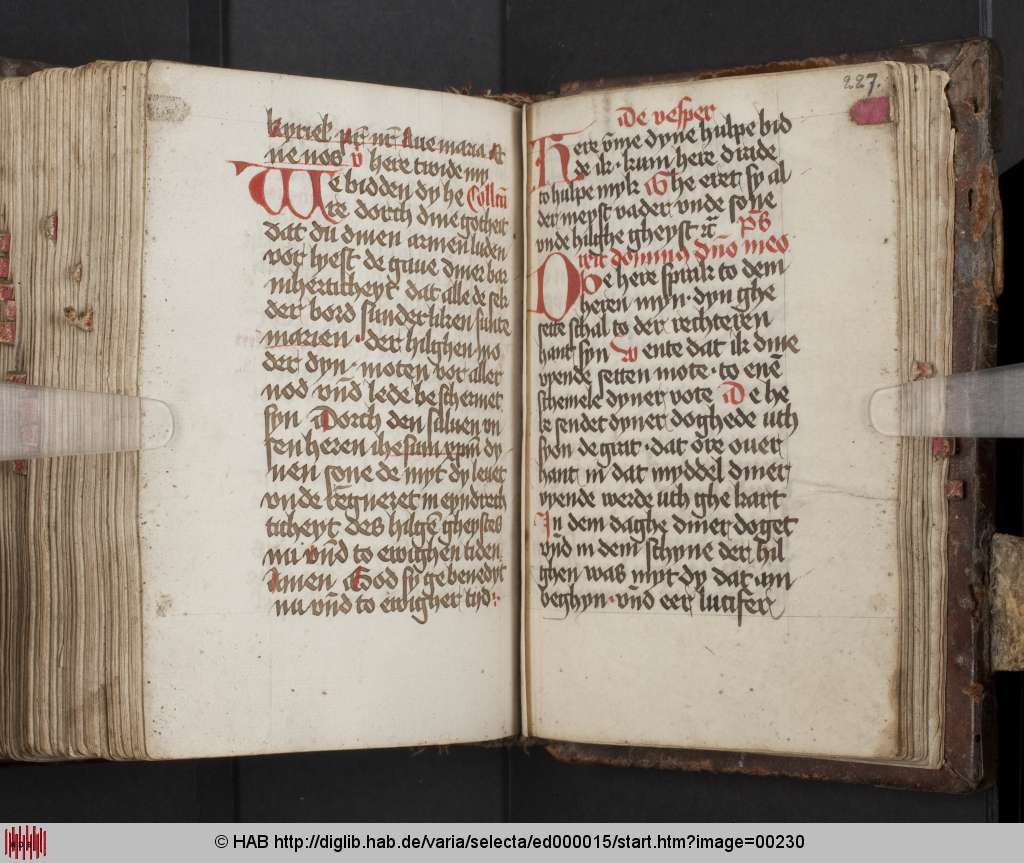 kyriel' pr̄ nr̄ Aue maria Et
ne nos v here twide my
We bidden dy he Collcū
re dorch dine gotheit
dat du dinen armen luden
vor lyest de gaue diner bar
mherticheyt dat alle de sek
der bord sunderliken sunte
marien · der hilghen mo
der dyn · moten vor aller
nod vn̄d lede beschermet
syn Dorch den suluen vn
sen heren ihesum xpm̄ dy
nen sone de myt dy leuet
vnde rēgneret in eyndrech
ticheyt des hilgē gheystes
nu vn̄d to ewighen tiden
Amen God sy gebenedyt
nu vn̄d to ewigher tyd :·
227.
De vesper
Here ỹme dyne hulpe bid
de ik · kum here drade
to hulpe myk Ghe eret sy al
der meyst vader vnde sone
vnde hilghe gheyst rc̄ Ps
Dixit dominus dn̄o meo
De here sprak to dem
heren myn · dyn ghe
sette schal to der rechteren
hant syn Wente dat ik dine
vyende setten mote · to enē
schemele dyner vote De he
re sendet dyner doghede uth
syon de grat · dat ōre ouer
hant in dat myddel diner
vyende werde uth ghe kart
In dem daghe diner doget
vn̄d in dem schyne der hil
ghen was myt dy dat · am
beghyn · vn̄d eer lucifer
© HAB http://diglib.hab.de/varia/selecta/ed000015/start.htm?image=00230